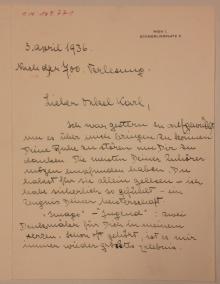 WIEN I.
3. April 1936.
Nach der 700. Vorlesung.
Lieber Onkel Karl,
Ich war gestern zu aufgewühlt
um es über mich bringen zu können
Deine Ruhe zu stören um Dir zu
danken. Die meisten Deiner Zuhörer
mögen empfunden haben: Du
habest für sie allein gelesen – ich
habe sicherlich so gefühlt – ein
Zeugnis Deiner Meisterschaft.
"Jugend": zwei
Denkmäler für Dich in meinem
schon oft gehört, ist es mir
immer wieder